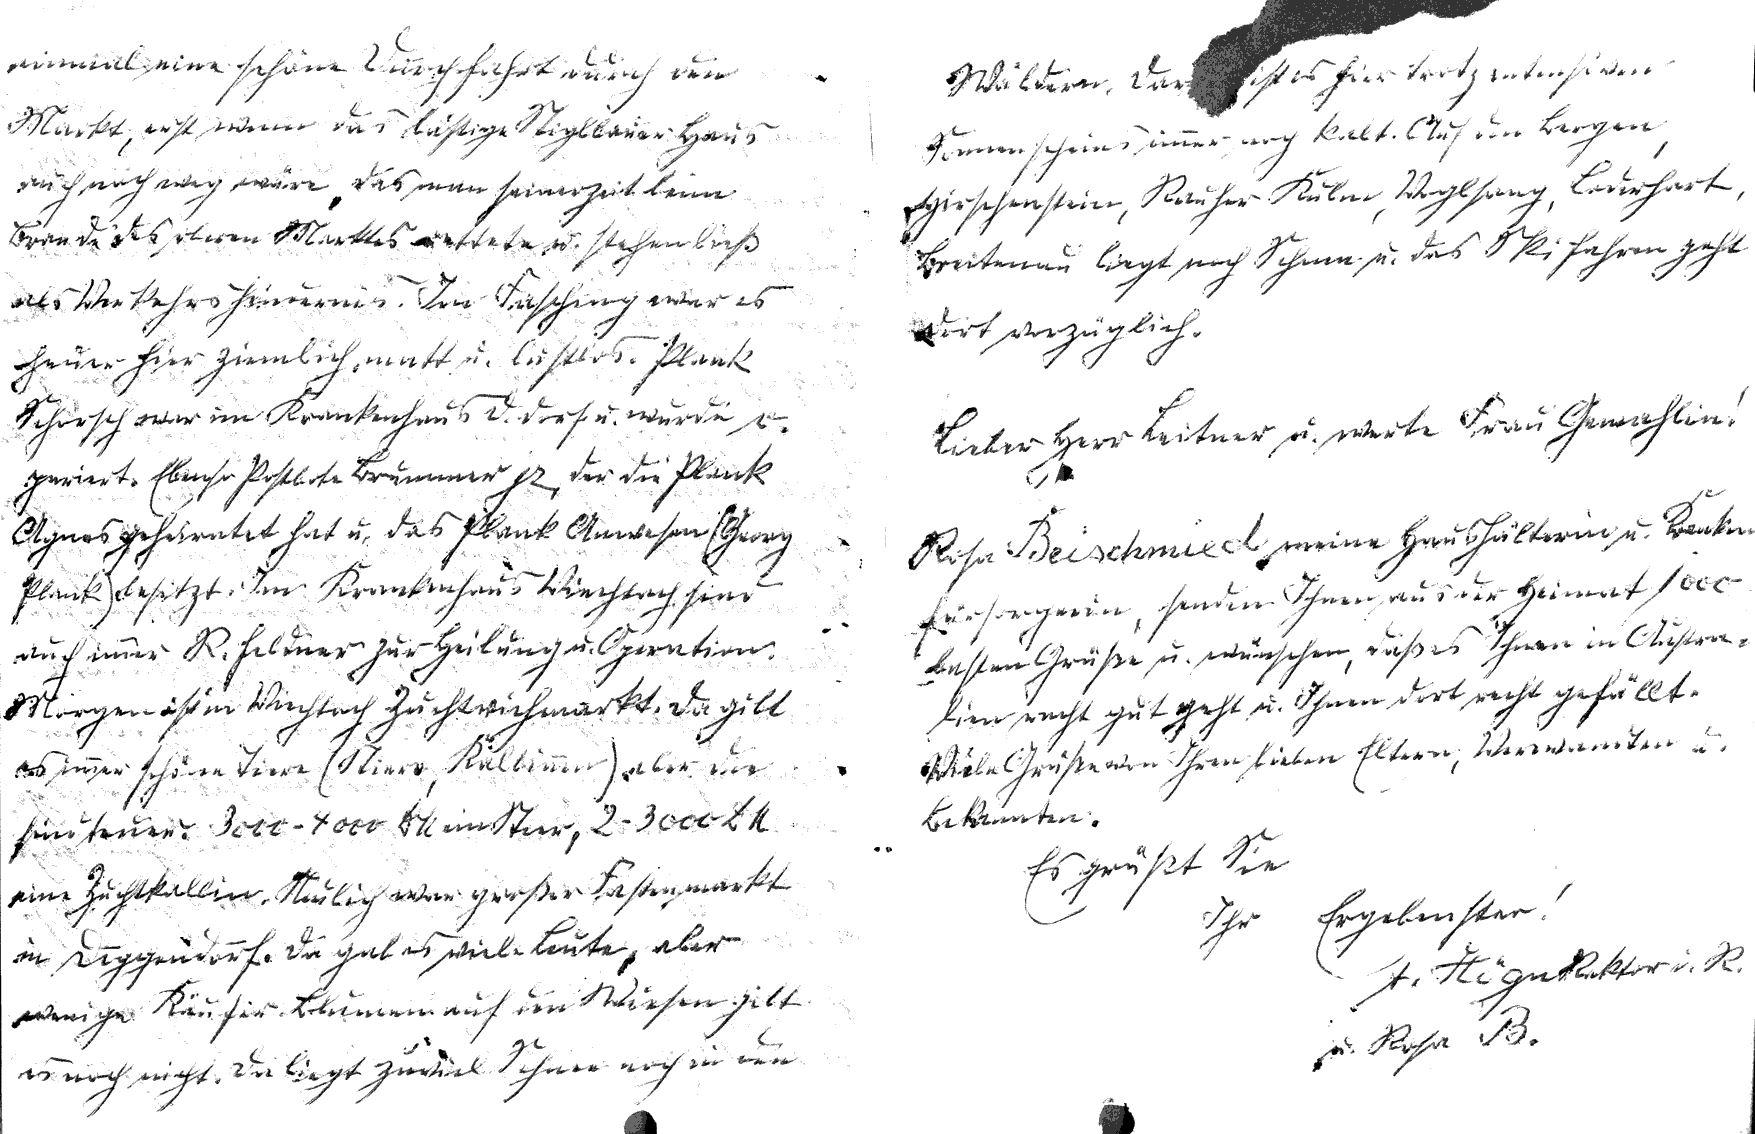 einmal eine schöne Durchfahrt durch den
Markt, erst wenn das lästige Stiglbauer Haus
auch noch weg wäre, das man seinerzeit beim
Brande des oberen Marktes rettete u. stehen ließ
als Verkehrshindernis. Im Fasching war es
heuer hier ziemlich matt u. lustlos. Plank
Schorsch war im Krankenhaus D. dorf u. wurde o-
periert. Ebenso Postbote Brummer jr, der die Plank
Agnes geheiratet hat u. das Plank Anwesen (Georg
Plank) besitzt. Im Krankenhaus Viechtach sind
auch im̅er R. Feldner zur Heilung u. Operation.
Morgen ist in Viechtach Zuchtviehmarkt. Da gibt
es im̅er schöne Tiere (Stiere, Kalbinnen) aber die
sind teuer. 3000-4000 DM ein Stier, 2-3000 DM
eine Zuchtkalbin. Neulich war großer Fastenmarkt
in Deggendorf. Da gab es viele Leute, aber
wenige Käufer. Blumen auf den Wiesen gibt
es noch nicht. Da liegt zuviel Schnee noch in den
Wäldern. ist es hier trotz intensiven
Sonnenscheins im̅er noch kalt. Auf den Bergen,
Hirschenstein, Rauher Kulm, Voglsang, Oederhart,
Breitenau liegt noch Schnee u. das Skifahren geht
dort vorzüglich.
Lieber Herr Leitner u. werte Frau Gemahlin!
Rosa Beischmied, meine Haushälterin u. Kranken
fürsorgerin, senden Ihnen aus der Heimat 1000
besten Grüße u. wünschen, daß es Ihnen in Austra-
lien recht gut geht u. Ihnen dort recht gefällt.
Viele Grüße von Ihren lieben Eltern, Verwandten u.
Bekannten.
Es grüßt Sie
Ihr Ergebenster!
A. Högn Rektor i. R.
u. Rosa B.